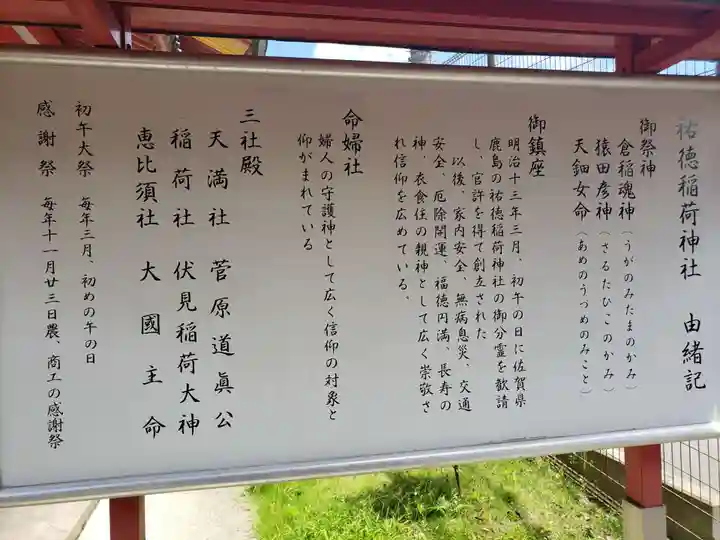 祐徳稲荷神社 由緒記
御祭神
倉稲魂神(うがのみたまのかみ)
猿田彦神(さるたひこのかみ)
天鈿女命(あめのうつめのみこと)
御鎮座
明治十三年三月、初午の日に佐賀県
鹿島の祐徳稲荷神社の御分霊を歓請
し、官許を得て創立された
以後、家内安全、無病息災、交通
安全、厄除開運、福徳円満、長寿の
神、衣食住の親神として広く崇敬さ
れ信仰を広めている。
命婦社
婦人の守護神として広く信仰の対象と
仰がまれている
三社殿
天満社 菅原道眞公
稲荷社 伏見稲荷大神
恵比須社 大國主命
初午大祭 毎年三月、初めの午の日
感謝祭 毎年十一月廿三日農、商工の感謝祭